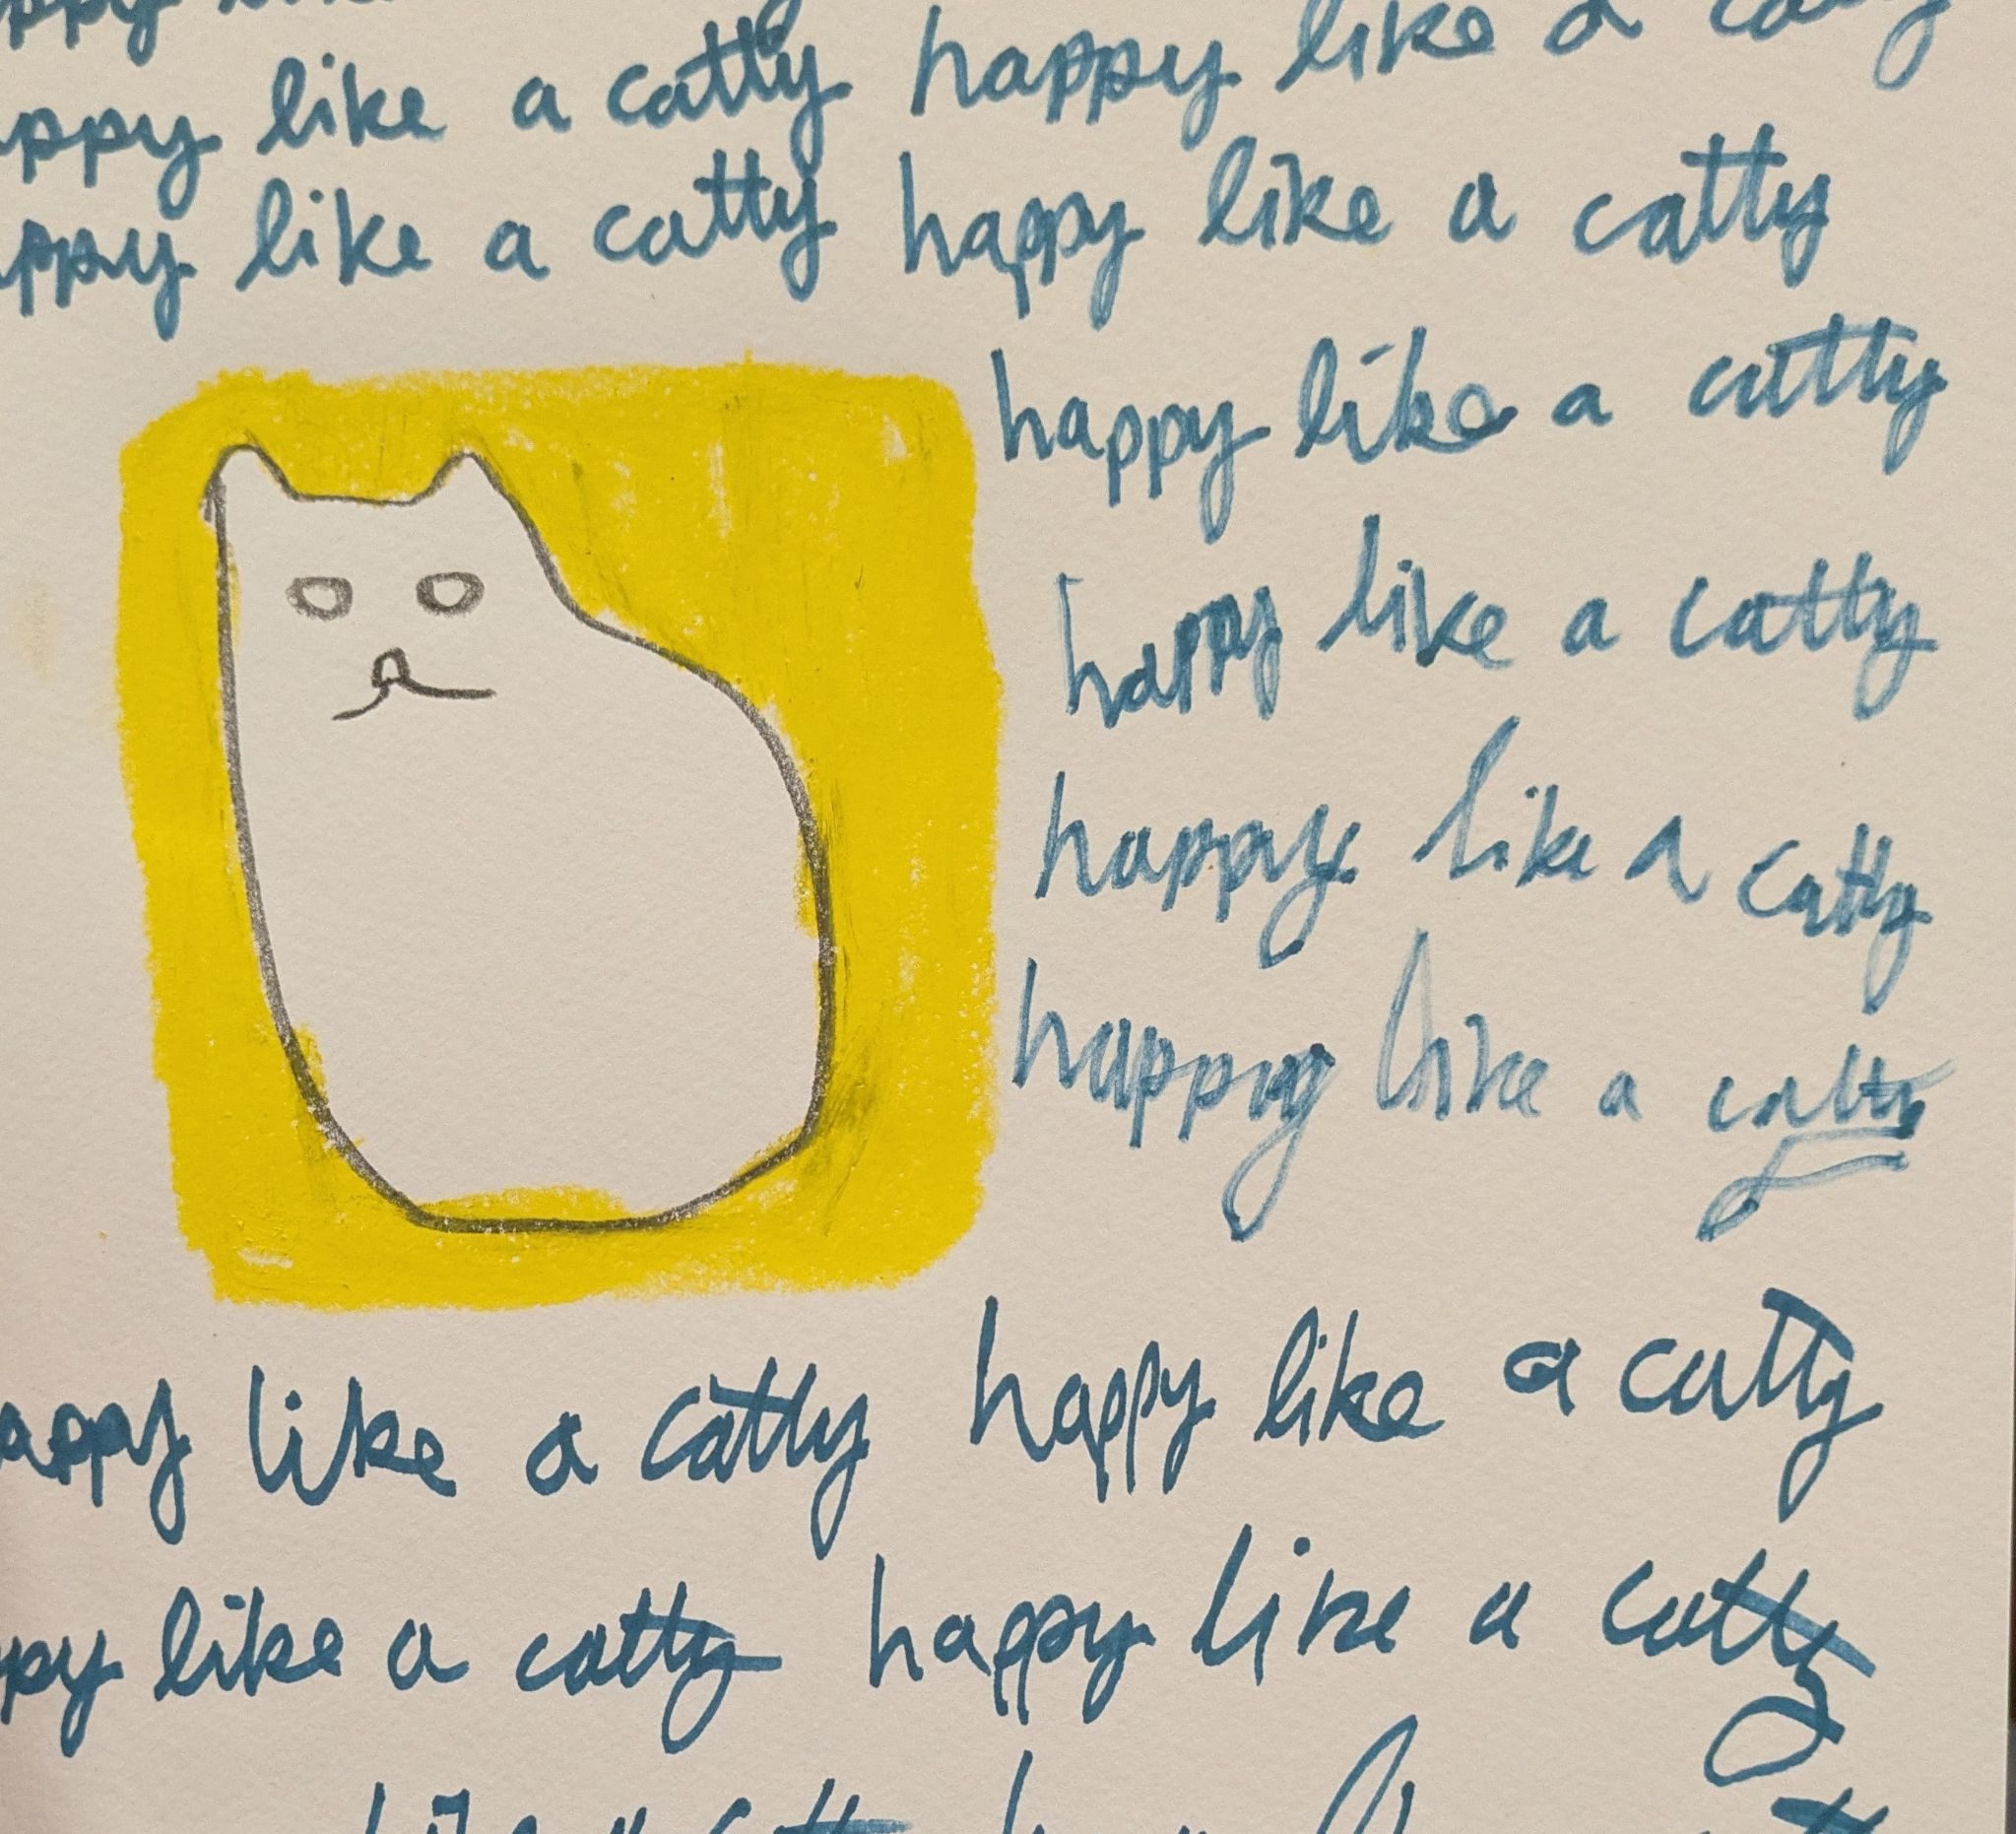 like a catty happy like a catty
like a catty happy like a catty
happy like a catty
happy like a catty
happy like a catty
happy like a catty
appy like a catty happy like a catty
like a catty happy like a catty